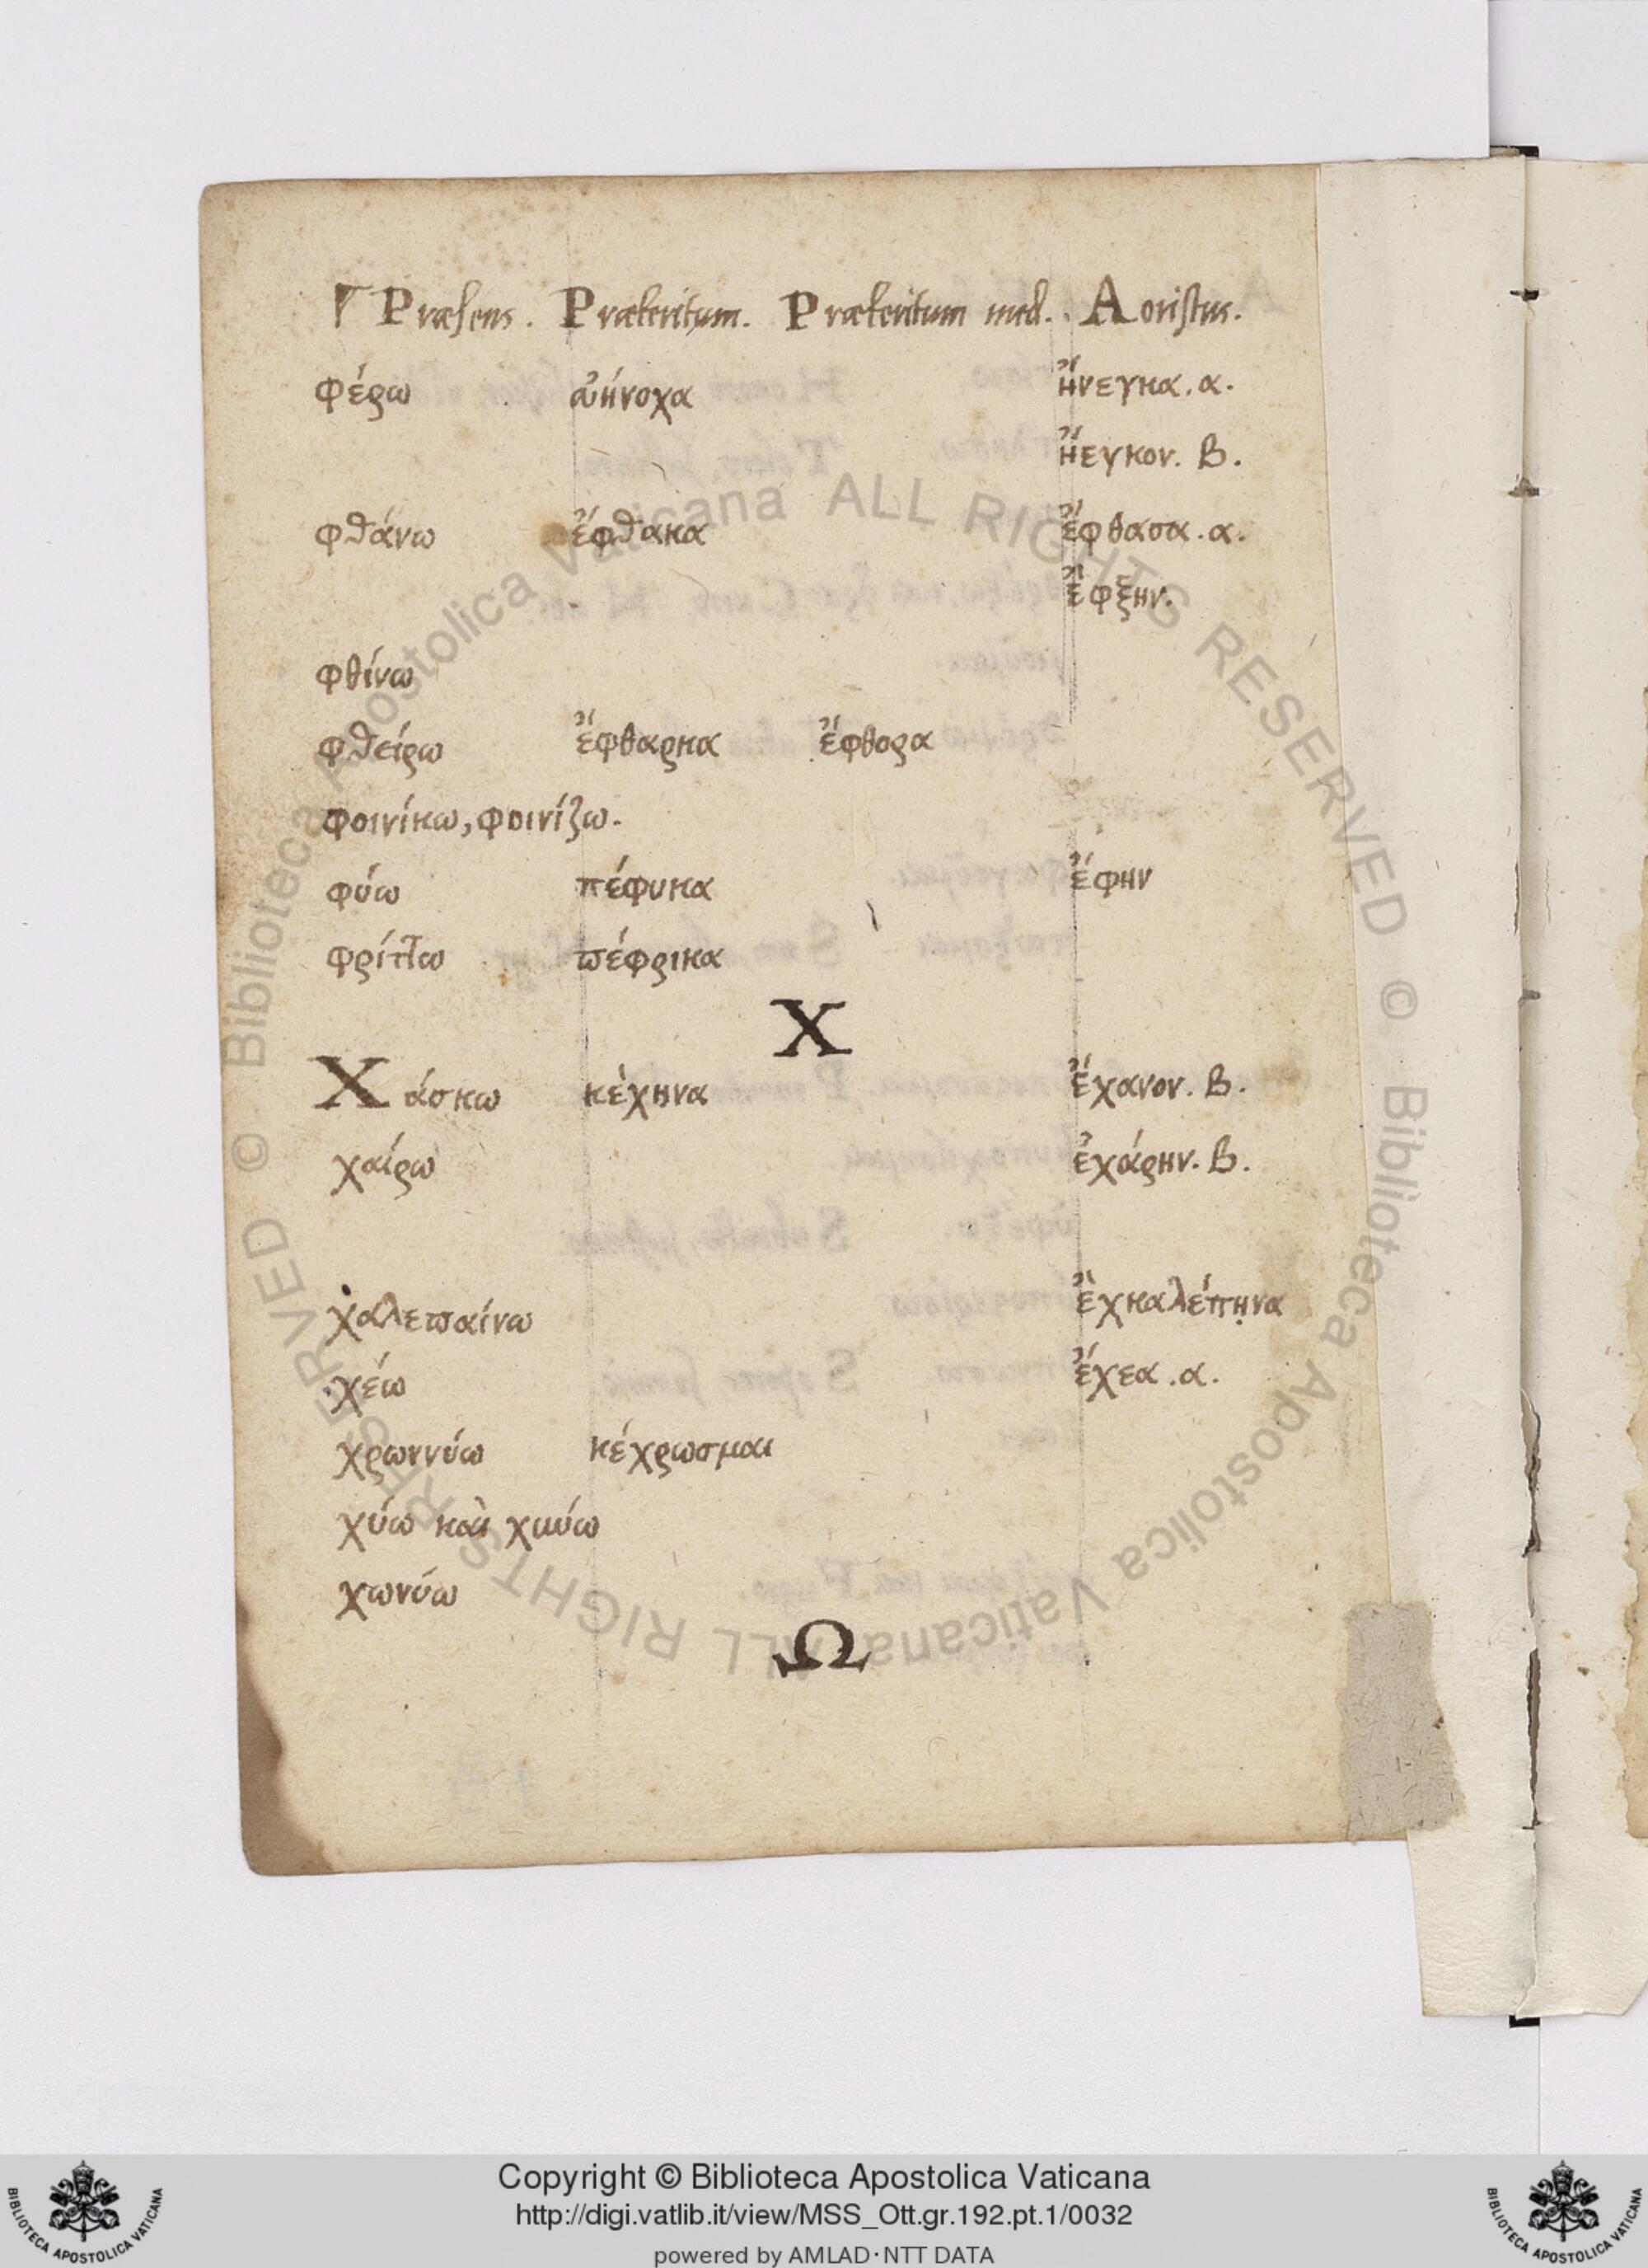 Præsens. Præteritum. Præteritum med. Aoristus.
φέρω ἀήνοχα ἤνεγκα. α.
ἤεγκον. β.
φθάνω ἔφθακα ἔφθασα. α.
φθίνω
φθείρω ἔφθαρκα ἔφθορα
φοινίκω, φοινίζω.
φύω πέφυκα ἔφην
φρίττω πέφρικα
Χ
Χάσκω κὲχηνα ἔχανον. β.
χαίρω ἐχάρην. β.
χαλεπαίνω ἒχκαλέπηνα
χέω ἔχεα. α.
χρωννύω κέχρωσμαι
χύω καὶ
χωνύω
Ω
© Biblioteca Apostolica Vaticana ALL RIGHTS RESERVED © Biblioteca Apostolica Vaticana ALL RIGHTS RESERVED
Copyright © Biblioteca Apostolica Vaticana
http://digi.vatlib.it/view/MSS_Ott.gr.192.pt.1/0032
powered by AMLAD·NTT DATA
BIBLIOTECA APOSTOLICA VATICANA
BIBLIOTECA APOSTOLICA VATICANA